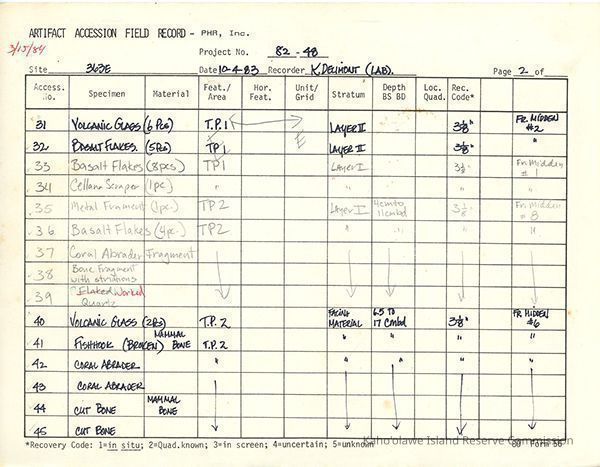 ARTIFACT ACCESSION FIELD RECORD - PHR, Inc.
3/15/84
Project No. 82-48
Site 363E Date 10-4-83 Recorder K. DELIMONT (LAB). Page 2 of
Access. No. Specimen Material Feat./ Area Hor. Feat. Unit/ Grid Stratum Depth BS BD Loc. Quad. Rec. Code*
31 VOLCANIC GLASS (6 PCS) T.P. 1 LAYER II 3 1/8" FR. MIDDEN #2
32 BASALT FLAKES. (5 PCS) TP1 E LAYER II 3 1/8" "
33 Basalt Flakes (8 pcs) TP1 Layer I 3 1/8" Fr. Midden # 1
34 Cellana Scraper (1 pc) " " " "
35 Metal Frament (1 pc) TP2 Layer I 4cm to 11cmbd 3 1/8" Fr. Midden # 8
36 Basalt Flakes (4 pc) TP2 " " " "
37 Coral Abrader Fragment
38 Bone Fragment with striations
39 Flaked Worked Quartz
40 VOLCANIC GLASS (2 PCS) T.P. 2 FACING MATERIAL 6.5 TO 17 CMBD 3 1/8" FR. MIDDEN #6
41 FISHHOOK (BROKEN) MAMMAL BONE T.P. 2 " " " "
42 CORAL ABRADER " " " " "
43 CORAL ABRADER
44 CUT BONE MAMMAL BONE
45 CUT BONE
*Recovery Code: 1=in situ; 2=Quad.known; 3=in screen; 4=uncertain; 5=unknown
Kaho'olawe Island Reserve Commission
80 Form 56